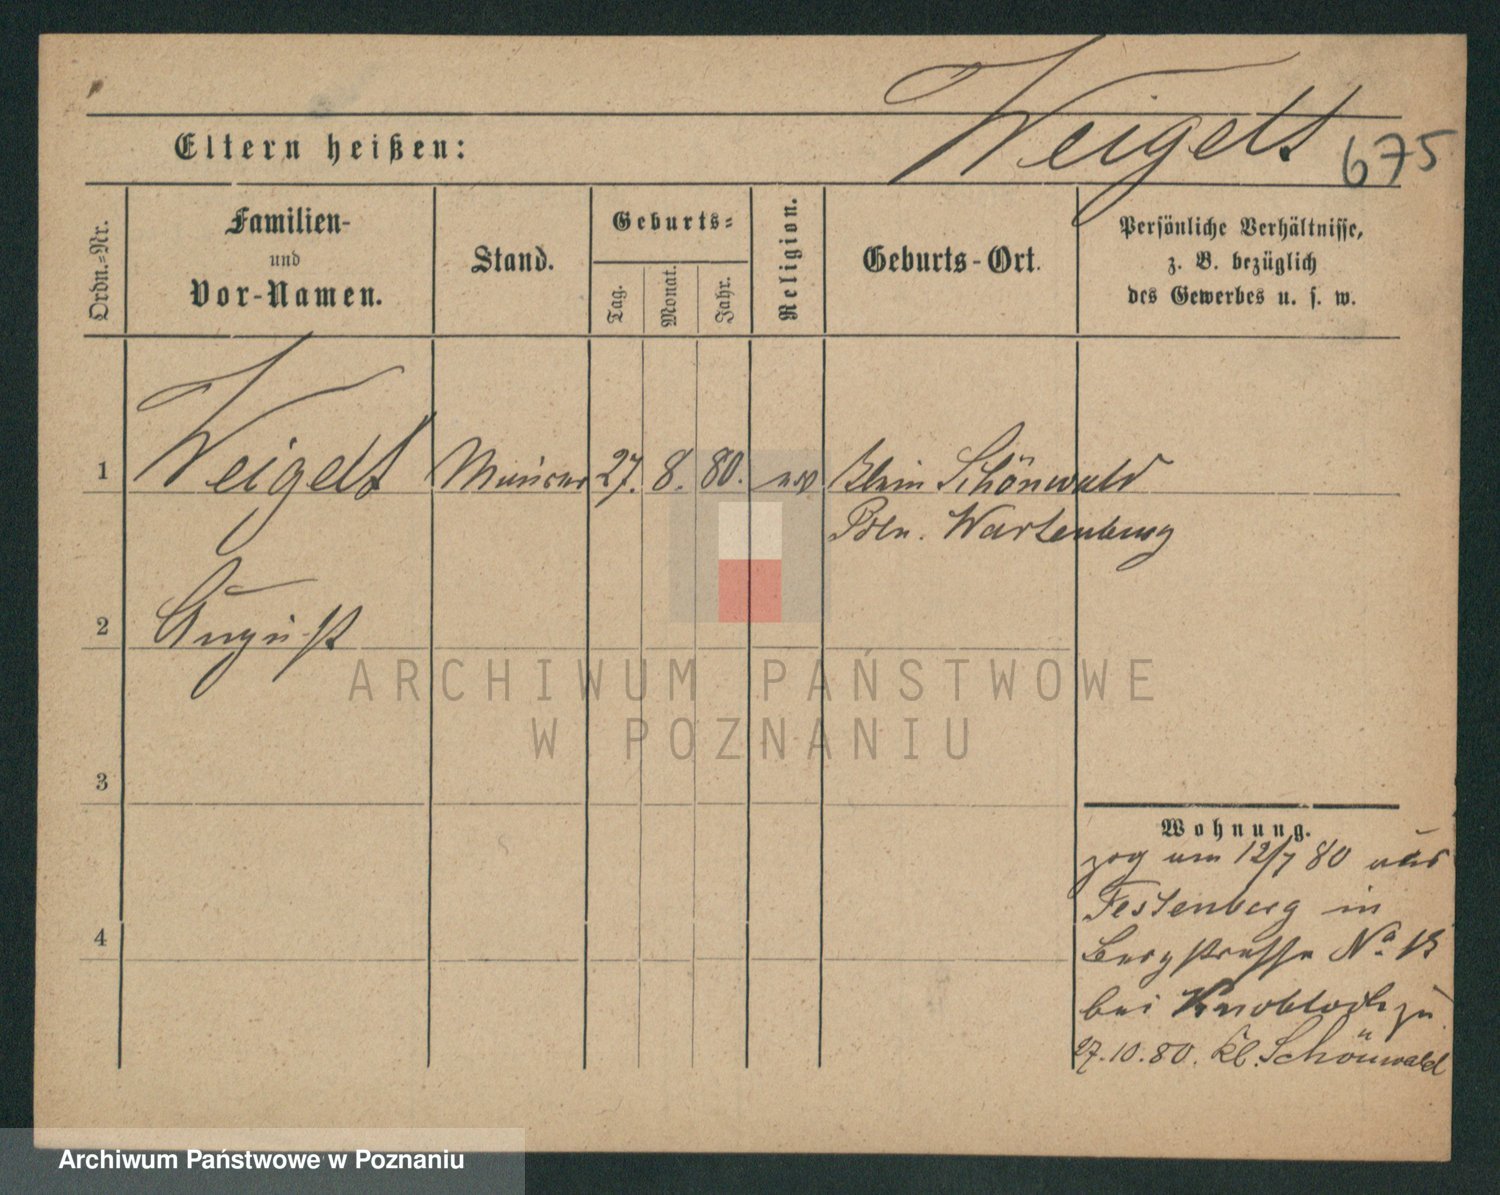 Weigelt 675
Eltern heißen:
Ordn.-Nr.
Familien-
und
Vor-Namen.
Stand.
Geburts-
Tag.
Monat.
Jahr.
Religion.
Geburts-Ort.
Persönliche Verhältnisse,
z. B. bezüglich
des Gewerbes u. s. w.
1 Weigelt Maurer 27. 8. 80. ev Klein Schönwald
Poln. Wartenberg
2 August
3
4
Wohnung.
zog am 12/7 80 aus
Festenberg in
Bergstrasse No 13
bei Knobloch zu
27.10.80. Kl. Schönwald
ARCHIWUM PAŃSTWOWE
W POZNANIU
Archiwum Państwowe w Poznaniu